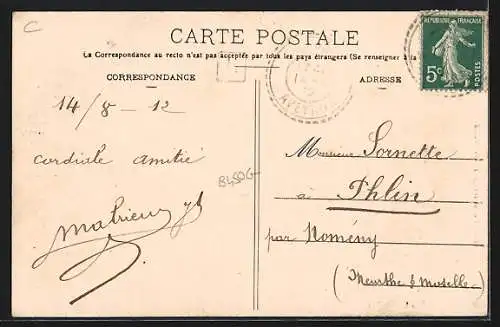 C
CARTE POSTALE
La Correspondance au recto n'est pas acceptée par tous les pays étrangers (Se renseigner à la
CORRESPONDANCE
ADRESSE
RÉPUBLIQUE FRANÇAISE
5c
POSTES
AVEYRON
14/8-12
cordiale amitié
Mathieu
Monsieur Sornette
à Phlin
par Nomény
(Meurthe & Moselle)